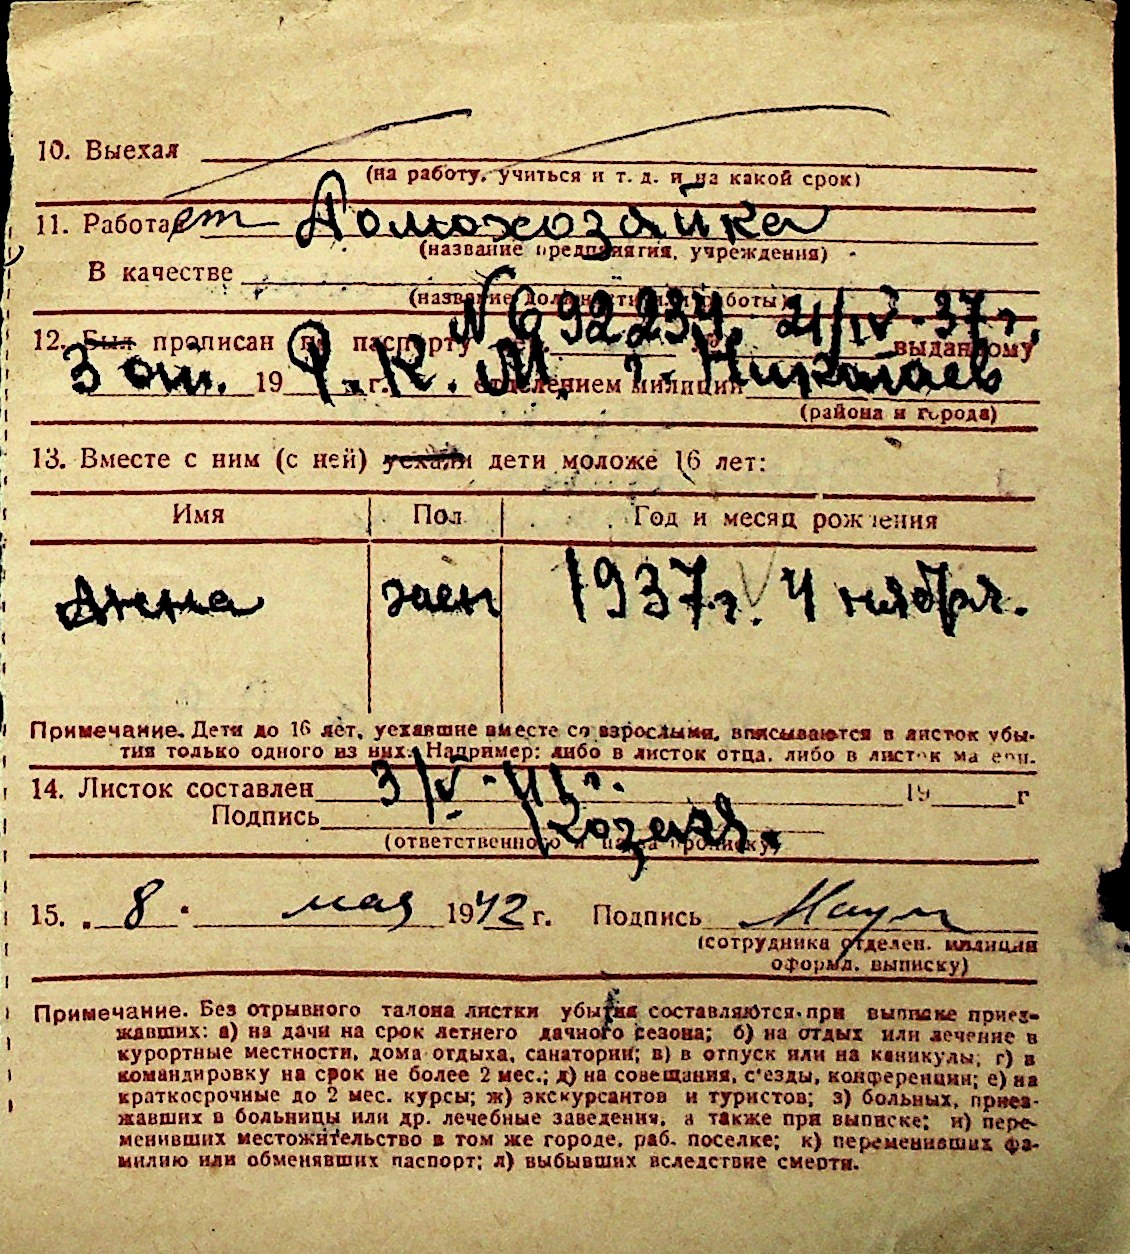 10. Выехал
(на работу, учиться и т. д. и на какой срок)
11. Работает Домохозяйка
(название предприятия, учреждения)
В качестве
(название должности или работы)
№ 692234 21/IV-37 г.
12. Был прописан по паспорту выданному
3 от. 19 Р. К. М. г. отделением милиции г. Николаев
(района и города)
13. Вместе с ним (с ней) уехали дети моложе 16 лет:
Имя Пол Год и месяц рождения
Анна жен 1937 г. 4 ноября.
Примечание. Дети до 16 лет, уехавшие вместе со взрослыми, вписываются в листок убы-
тия только одного из них. Например: либо в листок отца, либо в листок матери.
14. Листок составлен 3/V-41 г. 19 г
Подпись
(ответственного за прописку)
15. „ 8 " мая 1942 г. Подпись
(сотрудника отделен. милиции
оформл. выписку)
Примечание. Без отрывного талона листки убытия составляются при выписке приез-
жавших: а) на дачи на срок летнего дачного сезона; б) на отдых или лечение в
курортные местности, дома отдыха, санатории; в) в отпуск или на каникулы; г) в
командировку на срок не более 2 мес.; д) на совещания, с'езды, конференции; е) на
краткосрочные до 2 мес. курсы; ж) экскурсантов и туристов; з) больных, приез-
жавших в больницы или др. лечебные заведения, а также при выписке; и) пере-
менивших местожительство в том же городе, раб. поселке; к) переменивших фа-
милию или обменявших паспорт; л) выбывших вследствие смерти.